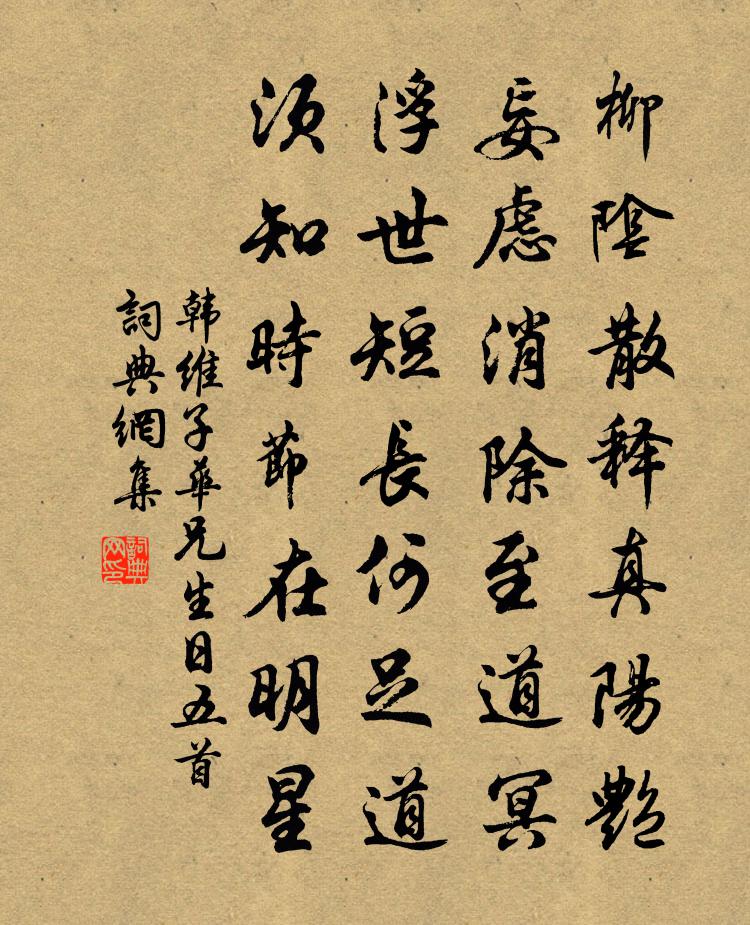 柳陰散释真陽艷
妄慮消除至道冥
浮世短長何足道
須知時節在明星
韩維子華兄生日五首
詞典網集
詞典网印